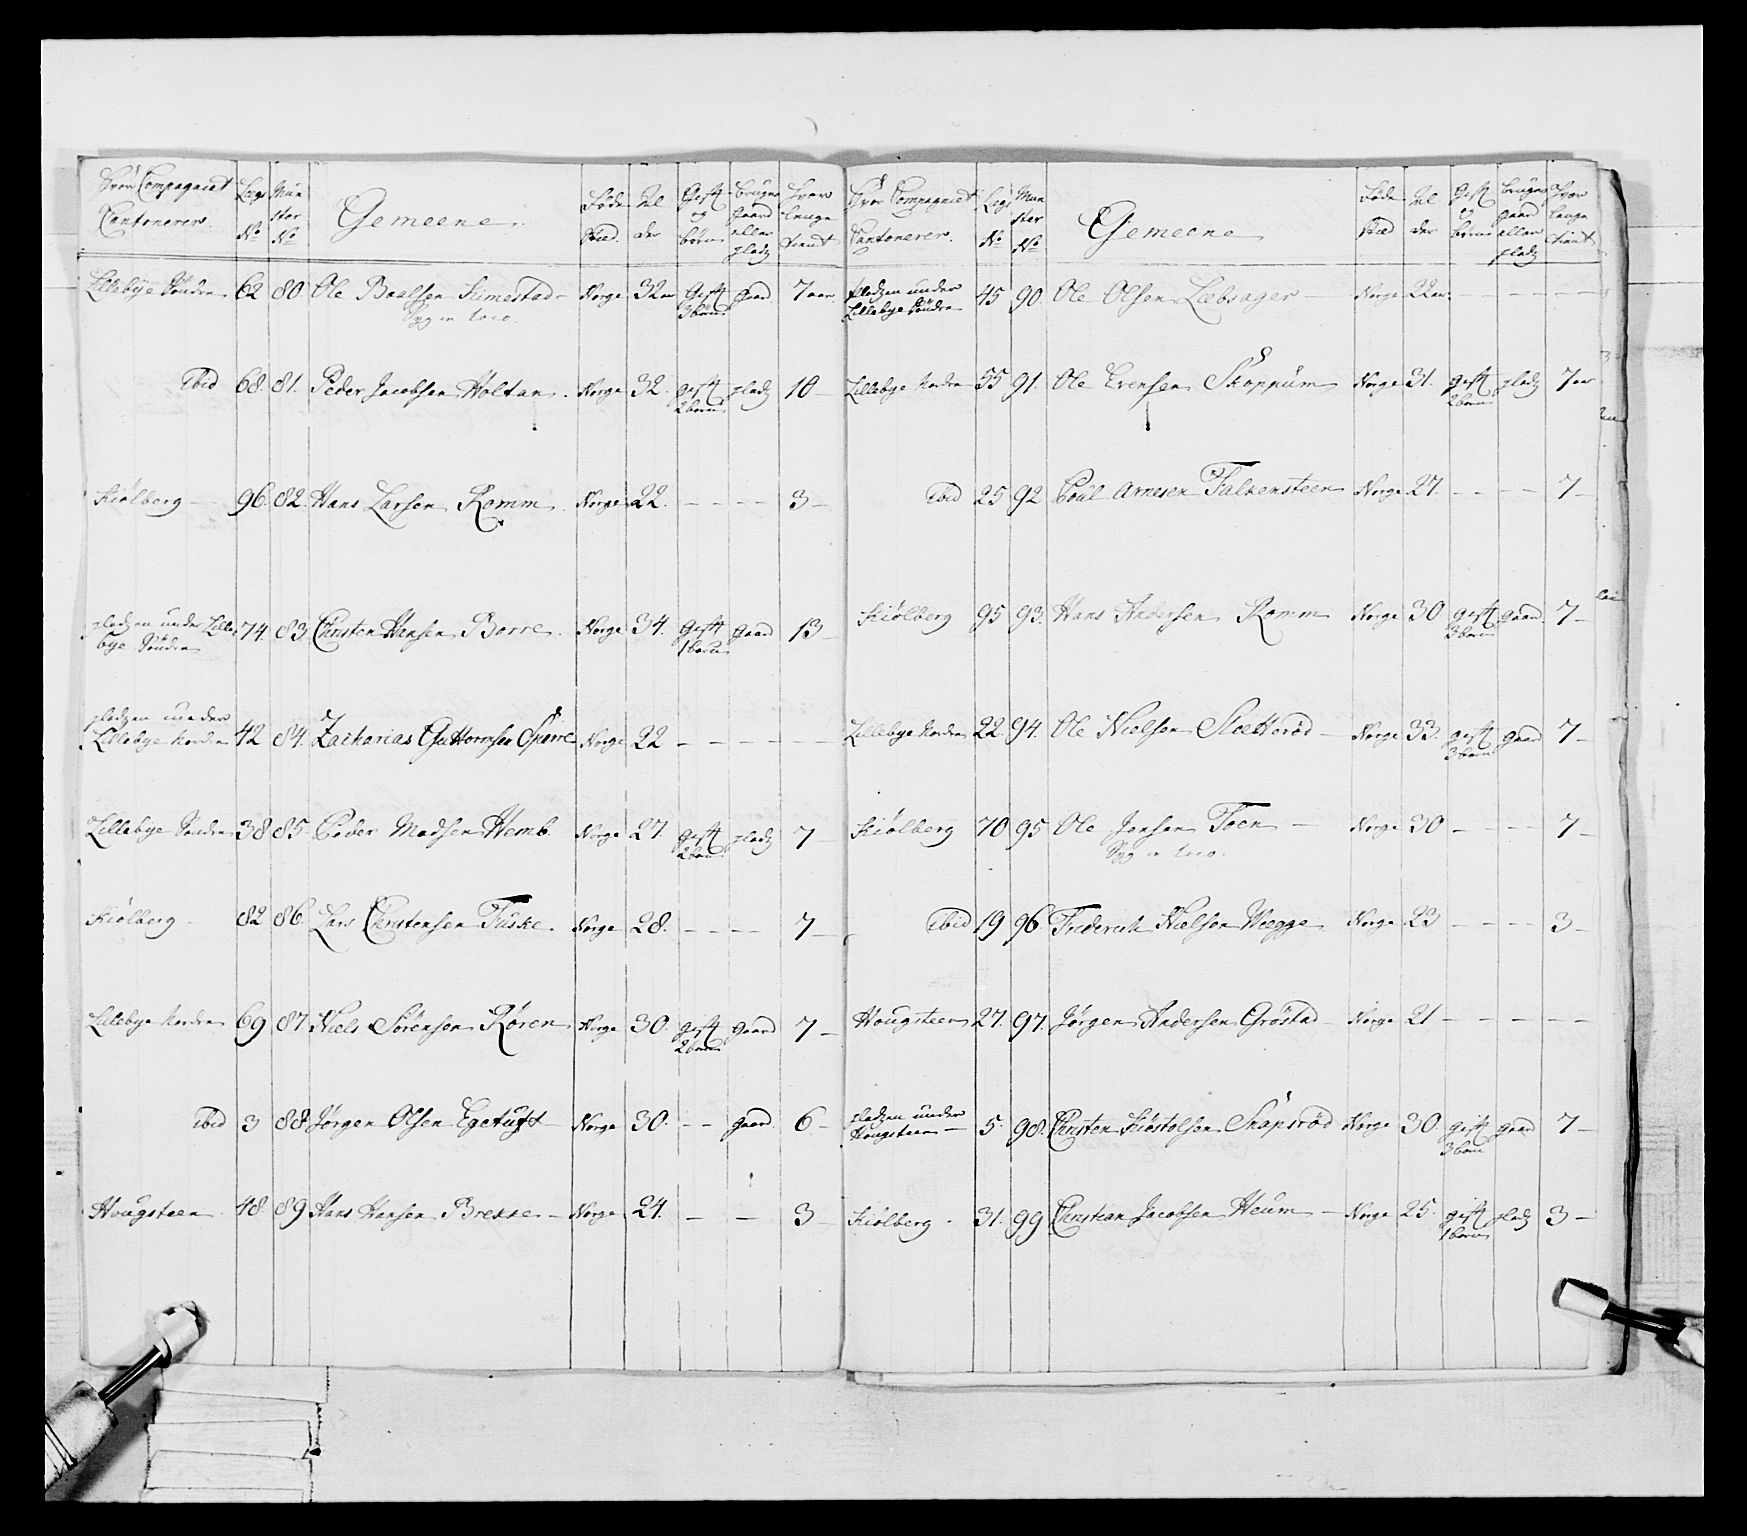 Hvor Compagniet Cantonerer. Legs No Mun ster No Gemeene. Føde Sted. Al der Gift og børn bruger gaard eller pladz hvor lenge tient
Lillebye Søndre 62 80. Ole Paalsen Kimestad Norge 32 aar Gift 3 børn gaard 7 aar
Syg in loco.
Ibid 68. 81. Peder Jacobsen Holtan. Norge 32. gift 2 børn pladz 10
Kiølberg 96. 82. Hans Larsen Ramm. Norge 22. - - - - 3
pladzen under Lille bye Søndre 74. 83 Christen Hansen Borre. Norge 34. gift 1 barn gaard 13
pladzen under Lillebye Nordre 42 84. Zacharias Guttormsen Sperre Norge 22 - - - -
Lillebye Søndre 38 85. Peder Madsen Hemb. Norge 27 gift 2 børn pladz 7
Kiølberg 82 86. Lars Christensen Fuske. Norge 28. - - - - 7
Lillebye Nordre 69 87. Niels Sørensen Røren Norge 30. gift 2 børn gaard 7
Ibid 3 88 Jørgen Olsen Egetuft Norge 30. - - gaard 6
Hougsteen 48. 89 Hans Hansen Brekke Norge 24. - - 3
Hvor Compagniet Cantonerer. Legs No Mun ster No Gemeene Føde Sted Al der Gift og børn bruger gaard eller pladz hvor lenge tient
pladzen under Lillebye Søndre 45 90. Ole Olsen Læbsager Norge 22 aar - - - -
Lillebye Nordre 55 91. Ole Evensen Skoppum Norge 31. gift 2 børn pladz 7 aar
Ibid 25 92 Poul Arnesen Falkensteen Norge 27. - - - 7
Kiølberg 95 93. Hans Andersen Ramm Norge 30 gift 3 børn gaard 7
Lillebye Nordre 22. 94. Ole Nielsen Sletterød Norge 33. gift 3 børn gaard 7
Kiølberg 70 95 Ole Jensen Foen Norge 30 - - - - 7
Syg in loco.
Ibid 19 96 Frederich Nielsen Wegge Norge 23 - - - - 3
Hougsteen 27. 97. Jørgen Andersen Grøstad Norge 21 - - - -
pladzen under Hougsteen 5. 98. Christen Kiøstolsen Skapsrød Norge 30 gift 3 børn gaard 7
Kiølberg 31. 99 Christian Jacobsen Heum Norge 25. gift 1 barn pladz 3